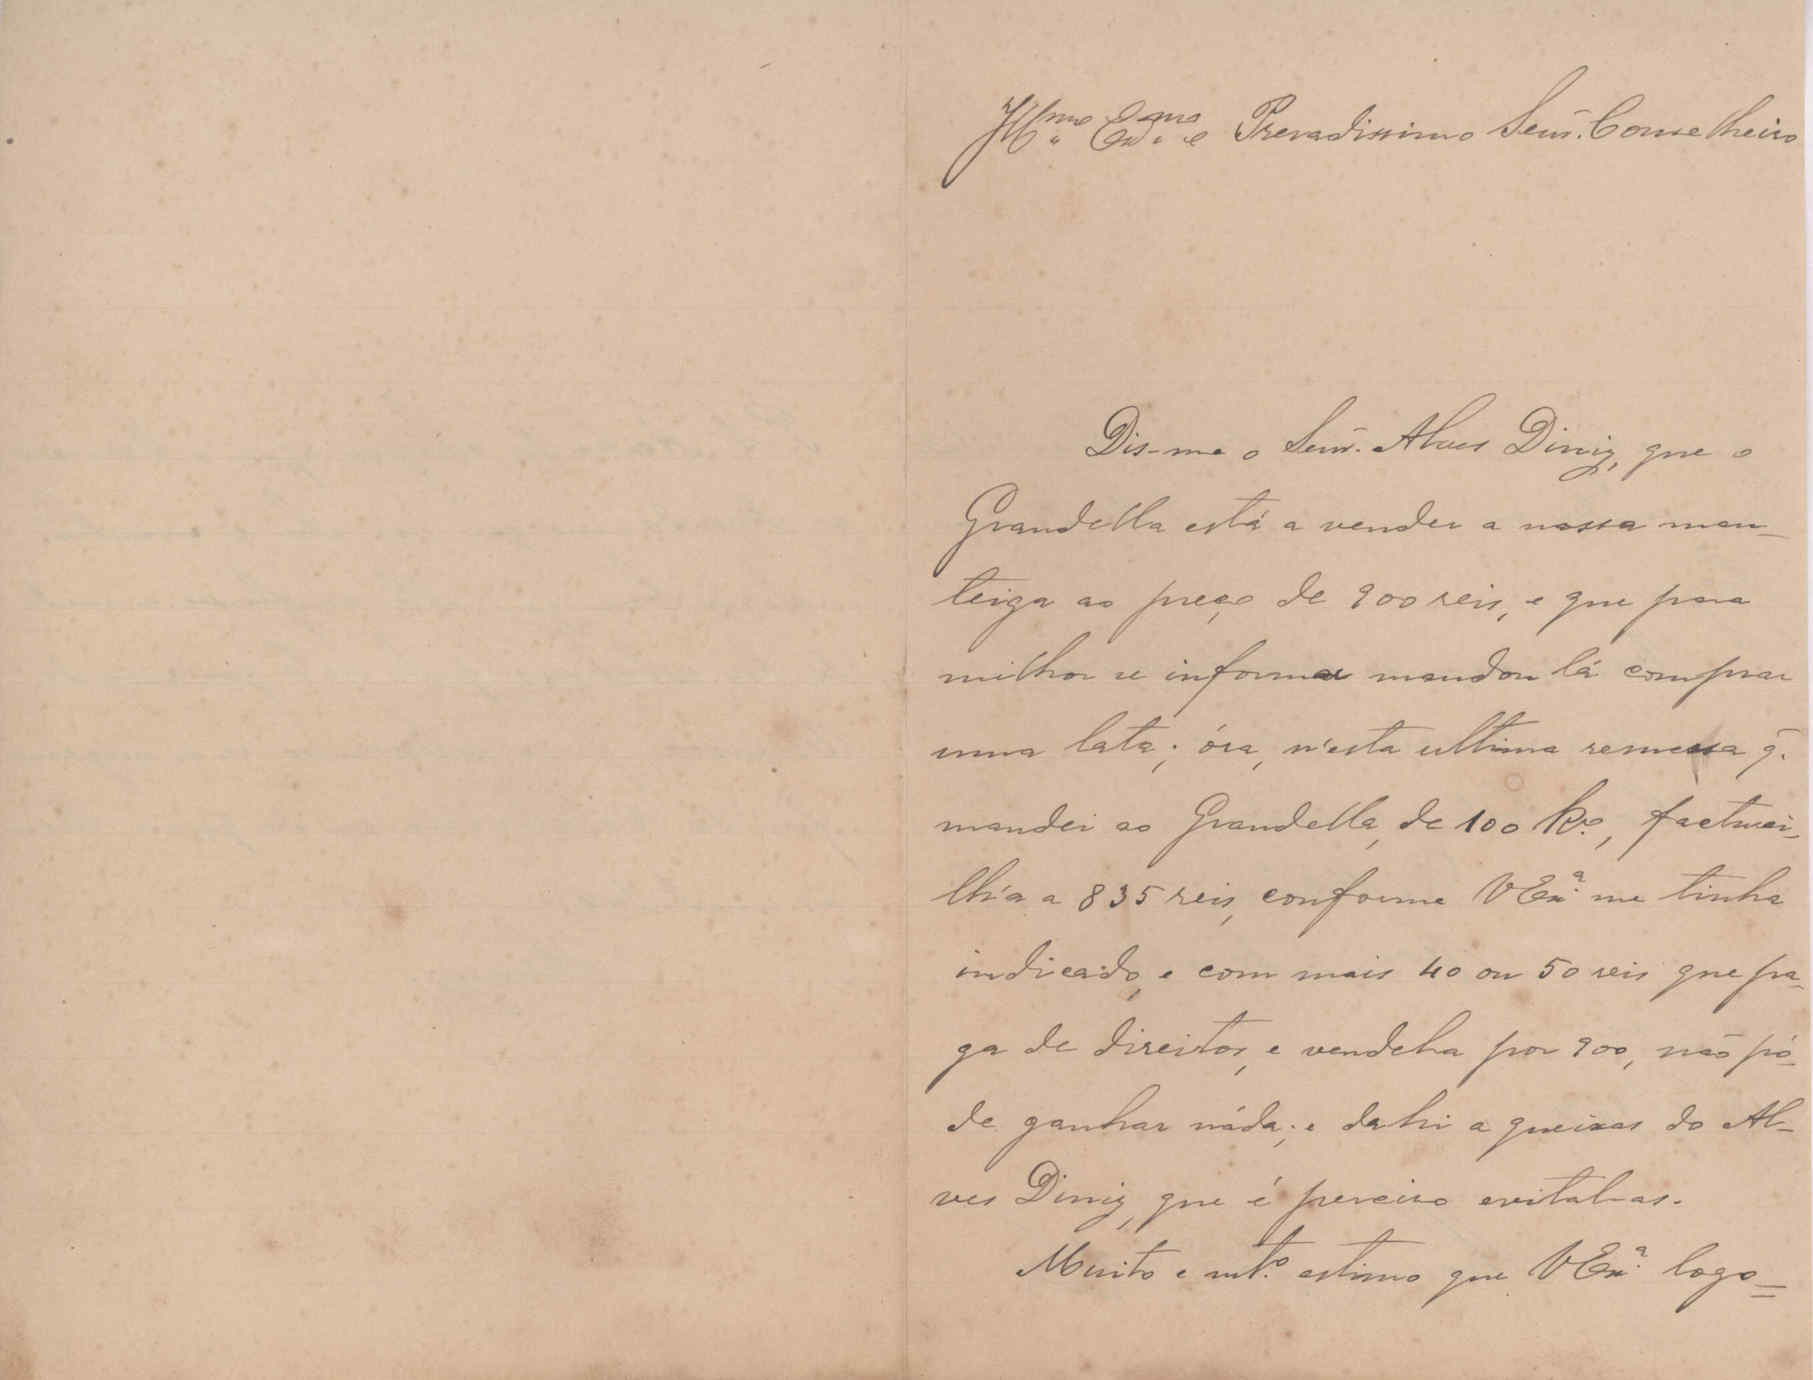 Ill.mo Ex.mo e Presadissimo Senr. Conselheiro
Dis-me o Senr. Alves Diniz, que o
Grandella está a vender a nossa man-
teiga ao preço de 900 reis, e que para
milhor se informar mandou lá comprar
uma lata; óra, n'esta ultima remessa q.
mandei ao Grandella, de 100 k.os, facturei-
lh'a a 835 reis, conforme VEx.a me tinha
indicado, e com mais 40 ou 50 reis que pa-
ga de direitos, e vendeha por 900, não pó-
de ganhar náda; e dahi a queixas do Al-
ves Diniz, que é preciso evital-as.
Muito e mt.o estimo que VEx.a logo=